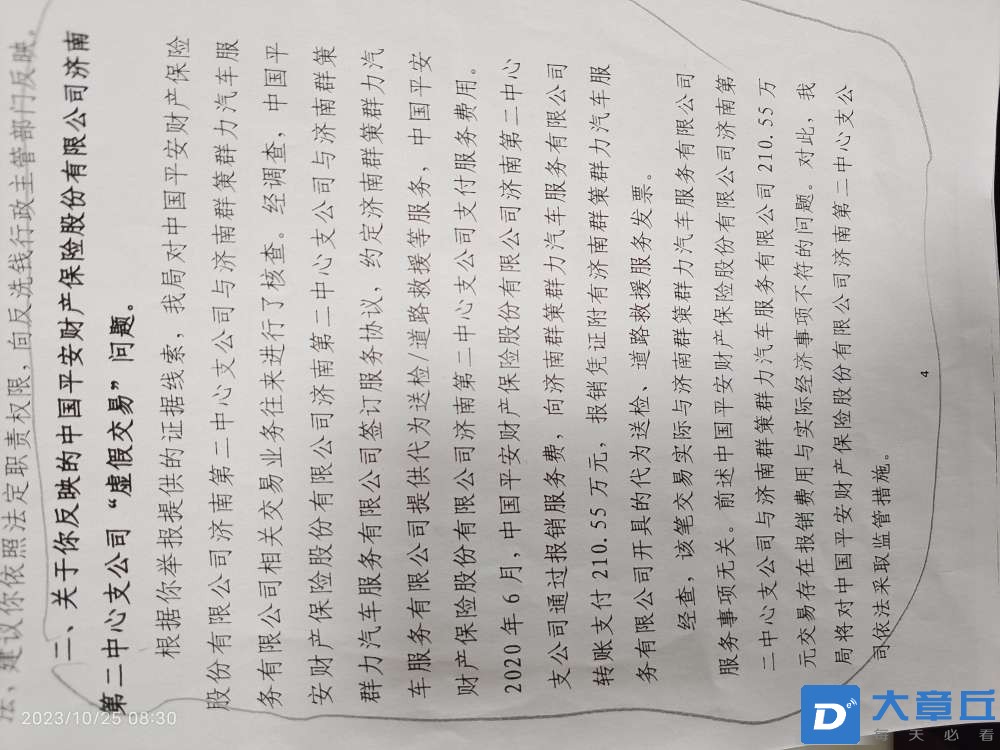 法，建议你依照法定职责权限，向反洗钱行政主管部门反映。
二、关于你反映的中国平安财产保险股份有限公司济南
第二中心支公司“虚假交易”问题。
根据你举报提供的证据线索，我局对中国平安财产保险
股份有限公司济南第二中心支公司与济南群策群力汽车服
务有限公司相关交易业务往来进行了核查。经调查，中国平
安财产保险股份有限公司济南第二中心支公司与济南群策
群力汽车服务有限公司签订服务协议，约定济南群策群力汽
车服务有限公司提供代为送检/道路救援等服务，中国平安
财产保险股份有限公司济南第二中心支公司支付服务费用。
2020年6月，中国平安财产保险股份有限公司济南第二中心
支公司通过报销服务费，向济南群策群力汽车服务有限公司
转账支付210.55万元，报销凭证附有济南群策群力汽车服
务有限公司开具的代为送检、道路救援服务发票。
经查，该笔交易实际与济南群策群力汽车服务有限公司
服务事项无关。前述中国平安财产保险股份有限公司济南第
二中心支公司与济南群策群力汽车服务有限公司210.55万
元交易存在报销费用与实际经济事项不符的问题。对此，我
局将对中国平安财产保险股份有限公司济南第二中心支公
司依法采取监管措施。
4
2023/10/25 08:30
大章丘
每天必看